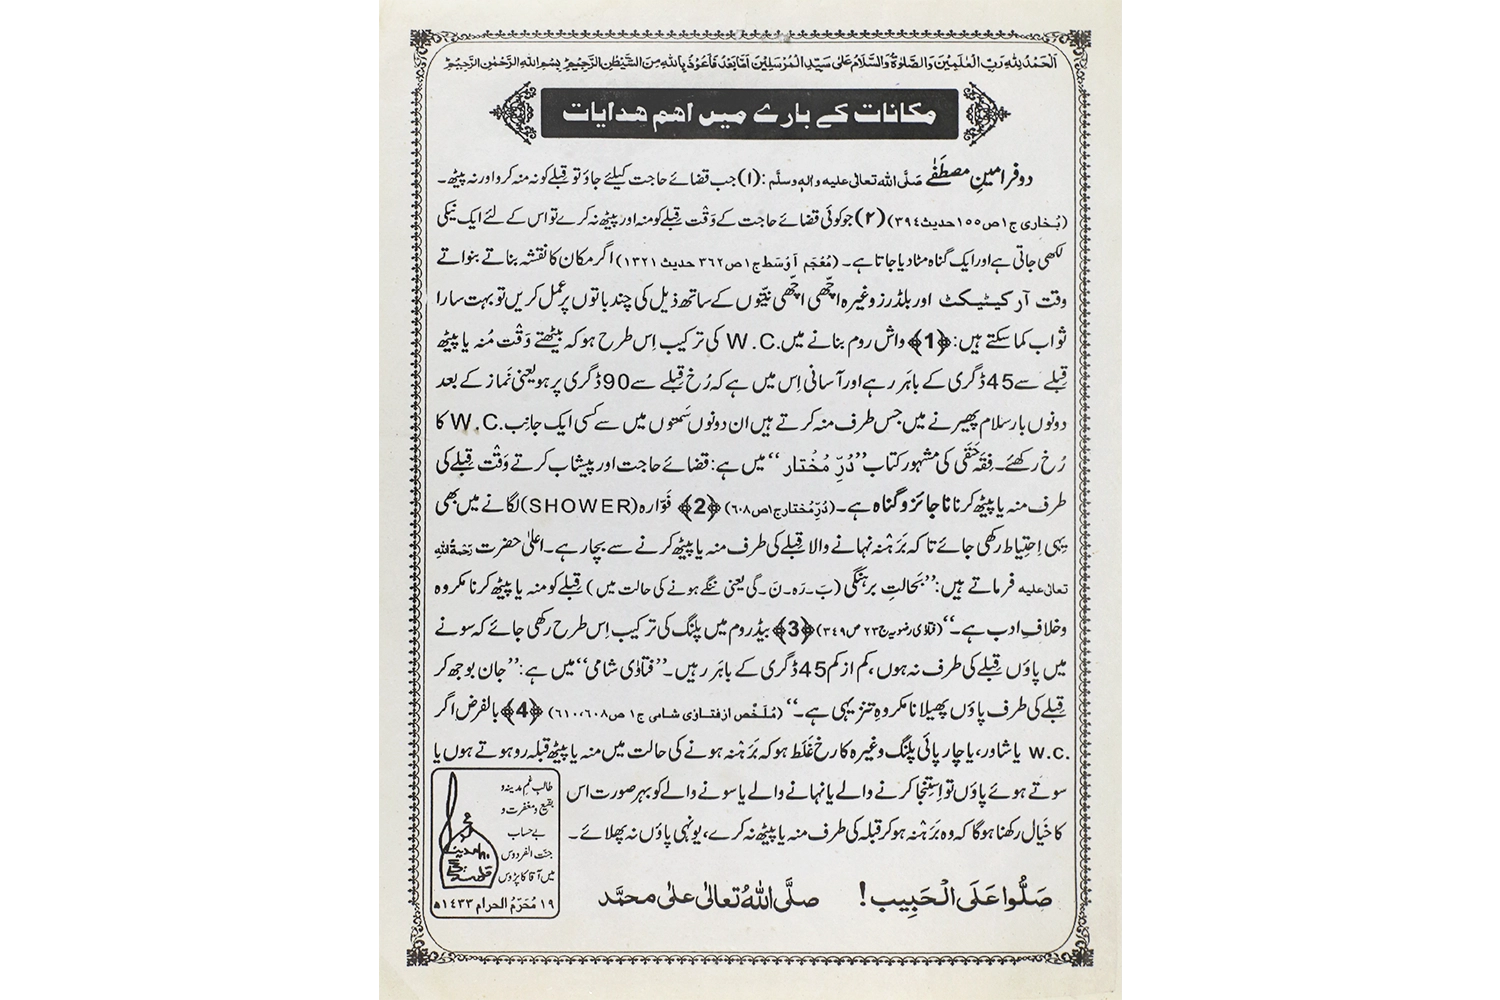 اَلْحَمْدُ لِلّٰهِ رَبِّ الْعٰلَمِيْنَ وَالصَّلٰوةُ وَالسَّلَامُ عَلٰى سَيِّدِ الْمُرْسَلِيْنَ اَمَّا بَعْدُ فَاَعُوْذُ بِاللّٰهِ مِنَ الشَّيْطٰنِ الرَّجِيْمِ بِسْمِ اللّٰهِ الرَّحْمٰنِ الرَّحِيْمِ
مکانات کے بارے میں اہم ہدایات
دو فرامینِ مصطَفٰے صَلَّى اللّٰه تعالٰى عليه واٰلهٖ وسلَّم : (۱) جب قضائے حاجت کیلئے جاؤ تو قبلے کو نہ منہ کرو اور نہ پیٹھ۔
(بُخاری ج۱ ص۱۵۵ حدیث ۳۹۴) (۲) جو کوئی قضائے حاجت کے وَقْت قبلے کو منہ اور پیٹھ نہ کرے تو اس کے لئے ایک نیکی
لکھی جاتی ہے اور ایک گناہ مٹا دیا جاتا ہے۔ (مُعْجَم اَوْسَط ج۱ ص۳۶۲ حدیث ۱۳۲۱) اگر مکان کا نقشہ بناتے بنواتے
وقت آرکیٹیکٹ اور بلڈرز وغیرہ اچّھی اچّھی نیّتوں کے ساتھ ذیل کی چند باتوں پر عمل کریں تو بہت سارا
ثواب کما سکتے ہیں: ﴿1﴾ واش روم بنانے میں W.C. کی ترکیب اِس طرح ہو کہ بیٹھتے وَقْت مُنہ یا پیٹھ
قبلے سے 45 ڈگری کے باہَر رہے اور آسانی اِس میں ہے کہ رُخ قبلے سے 90 ڈگری پر ہو یعنی نَماز کے بعد
دونوں بار سلام پھیرنے میں جس طرف منہ کرتے ہیں ان دونوں سَمتوں میں سے کسی ایک جانِب W.C. کا
رُخ رکھئے۔ فِقہِ حَنَفی کی مشہور کتاب ”دُرِّ مُخْتار“ میں ہے: قضائے حاجت اور پیشاب کرتے وَقْت قبلے کی
طرف منہ یا پیٹھ کرنا ناجائز و گناہ ہے۔ (دُرِّمُختار ج۱ ص۶۰۸) ﴿2﴾ فَوّارہ (SHOWER) لگانے میں بھی
یہی اِحتِیاط رکھی جائے تاکہ بَرَہْنہ نہانے والا قبلے کی طرف منہ یا پیٹھ کرنے سے بچا رہے۔ اعلیٰ حضرت رَحْمَةُ اللّٰهِ
تعالٰى عليه فرماتے ہیں: ”بَحالتِ برہنگی (بَ۔رَہ۔نَ۔گی یعنی ننگے ہونے کی حالت میں) قبلے کو منہ یا پیٹھ کرنا مکروہ
و خلافِ ادب ہے۔“ (فتاوٰی رضویہ ج۲۳ ص۳۴۹) ﴿3﴾ بیڈروم میں پلنگ کی ترکیب اِس طرح رکھی جائے کہ سونے
میں پاؤں قبلے کی طرف نہ ہوں، کم از کم 45 ڈگری کے باہَر رہیں۔ ”فتاوٰی شامی“ میں ہے: ”جان بوجھ کر
قبلے کی طرف پاؤں پھیلانا مکروہِ تنزیہی ہے۔“ (مُلَخَّص از فتاوٰی شامی ج۱ ص۶۰۸،۶۱۰) ﴿4﴾ بالفرض اگر
w.c. یا شاور، یا چارپائی پلنگ وغیرہ کا رخ غَلَط ہو کہ بَرَہْنہ ہونے کی حالت میں منہ یا پیٹھ قبلہ رو ہوتے ہوں یا
سوتے ہوئے پاؤں تو اِستِنجا کرنے والے یا نہانے والے یا سونے والے کو بہر صورت اس
کا خَیال رکھنا ہوگا کہ وہ بَرَہْنہ ہو کر قبلہ کی طرف منہ یا پیٹھ نہ کرے، یونہی پاؤں نہ پھیلائے۔
صَلُّوا عَلَى الْحَبِيب! صلَّى اللّٰهُ تعالٰى علٰى محمَّد
طالب غمِ مدینہ و
بقیع و مغفرت و
بے حساب
جنّت الفردوس
میں آقا کا پڑوس
۱۹ مُحَرَّمُ الحرام ۱۴۳۳ھ